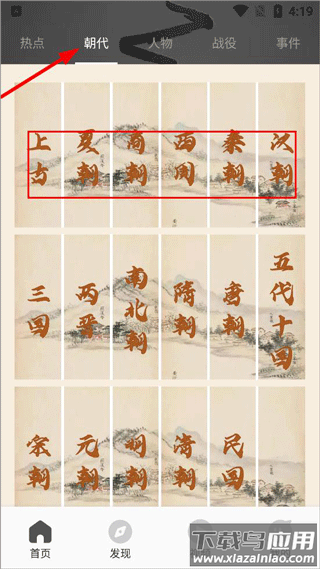 4:19
热点 朝代 人物 战役 事件
上古 夏朝 商朝 西周 秦朝 汉朝
三国 两晋 南北朝 隋朝 唐朝 五代十国
宋朝 元朝 明朝 清朝 民国
首页 发现
下载鸟应用
www.xiazainiao.com